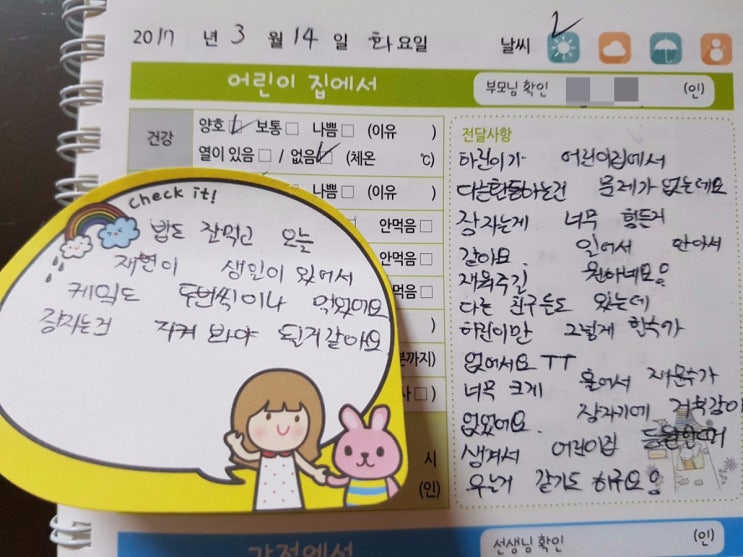 2017 년 3 월 14 일 화요일 날씨
어린이 집에서 부모님 확인 (인)
건강
양호 □ 보통 □ 나쁨 □ (이유 )
열이 있음 □ / 없음 □ (체온 ℃)
나쁨 □ (이유 )
안먹음 □
안먹음 □
먹음 □
)
분까지)
사 □ )
시
(인)
check it!
밥도 잘먹고 오늘
재현이 생일이 있어서
케익도 두번씩이나 먹었어요
잠자는건 지켜 봐야 될거같아요
전달사항
하린이가 어린이집에서
다른 하는건 문제가 없는데요
잠자는게 너무 힘든거
같아요. 일어서 안아서
재워주길 원하네요
다른 친구들도 있는데
하린이만 그렇게 할수가
없어서요 ㅠㅠ
너무 크게 울어서 재울수가
없었어요. 잠자기에 거부감이
생겨서 어린이집
우는거 같기도 하구요
가정에서 선생님 확인 (인)